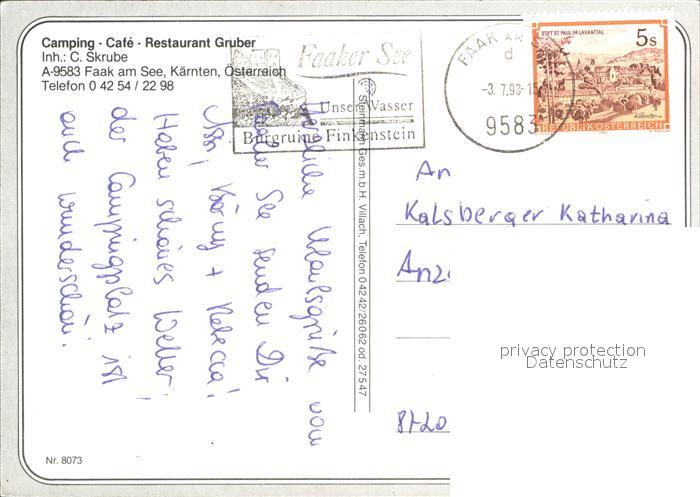 Camping · Café · Restaurant Gruber
Inh.: C. Skrube
A-9583 Faak am See, Kärnten, Österreich
Telefon 0 42 54 / 22 98
Faaker See
Unser Wasser
Burgruine Finkenstein
FAAK AM
d
-3. 7.93-1
9583
STIFT ST. PAUL IM LAVANTTAL
5s
REPUBLIK ÖSTERREICH
Herzliche Urlaubsgrüße vom
Faaker See senden Dir
Rebecca!
Haben schönes Wetter!
der Campingplatz ist
auch wunderschön!
Steinmann Ges.m.b.H. Villach, Telefon 0 42 42/26 0 62 od. 27 5 47
An
Kalsberger Katharina
Anz
privacy protection
Datenschutz
Nr. 8073